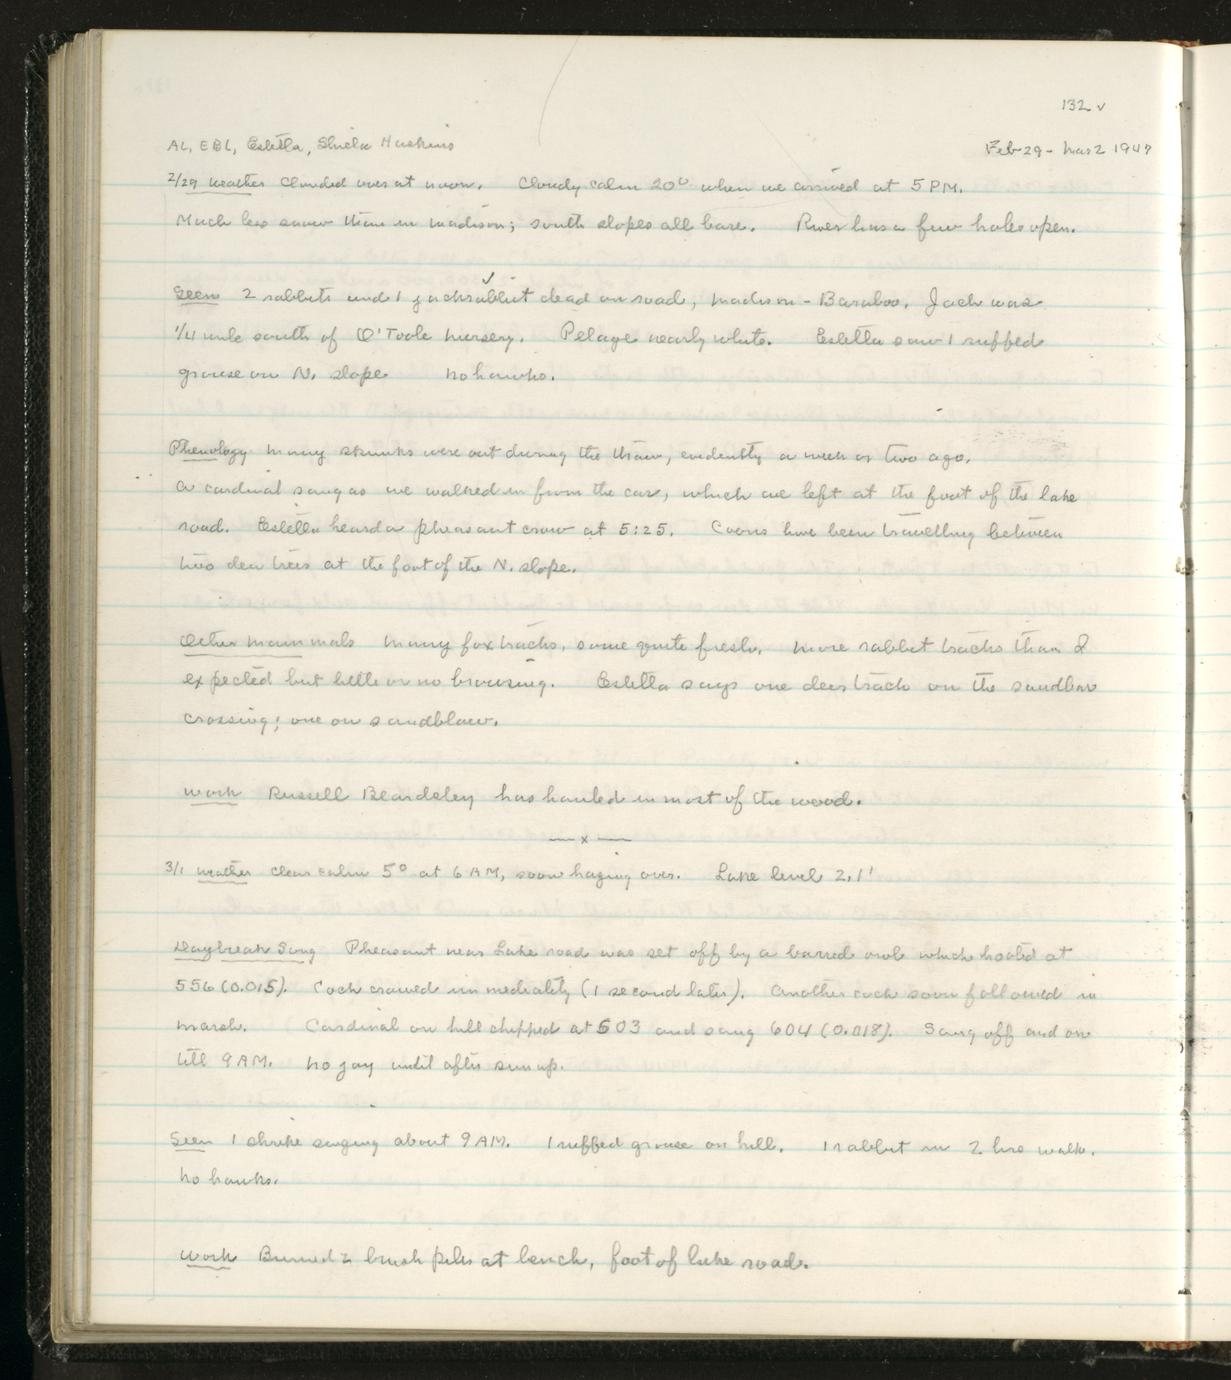 132 v
AL, EBL, Estella, Shiela Huskins
Feb 29 - Mar 2 1947
2/29 Weather Clouded over at noon. Cloudy calm 20° when we arrived at 5 PM.
Much less snow than in Madison; south slopes all bare. River has a few holes open.
Seen 2 rabbits and 1 jackrabbit dead on road, Madison - Baraboo. Jack was
1/4 mile south of O'Toole Nursery. Pelage nearly white. Estella saw 1 ruffed
grouse on N. slope No hawks.
Phenology Many skunks were out during the thaw, evidently a week or two ago.
A cardinal sang as we walked in from the car, which we left at the foot of the lake
road. Estella heard a pheasant crow at 5:25. Coons have been travelling between
two den trees at the foot of the N. slope.
Other mammals Many fox tracks, some quite fresh. More rabbit tracks than I
expected but little or no browsing. Estella says one deer track on the sandbar
crossing; one on sandblow.
Work Russell Beardsley has hauled in most of the wood.
— x —
3/1 Weather Clear calm 5° at 6 AM, soon hazing over. Lake level 2.1'
Daybreak Song Pheasant near Lake road was set off by a barred owl which hooted at
556 (0.015). Cock crowed immediately (1 second later). Another cock soon followed in
marsh. Cardinal on hill chipped at 603 and sang 604 (0.018). Sang off and on
till 9 AM. No jay until after sunup.
Seen 1 shrike singing about 9 AM. 1 ruffed grouse on hill. 1 rabbit in 2 hrs walk.
No hawks.
Work Burned 2 brush piles at bench, foot of lake road.